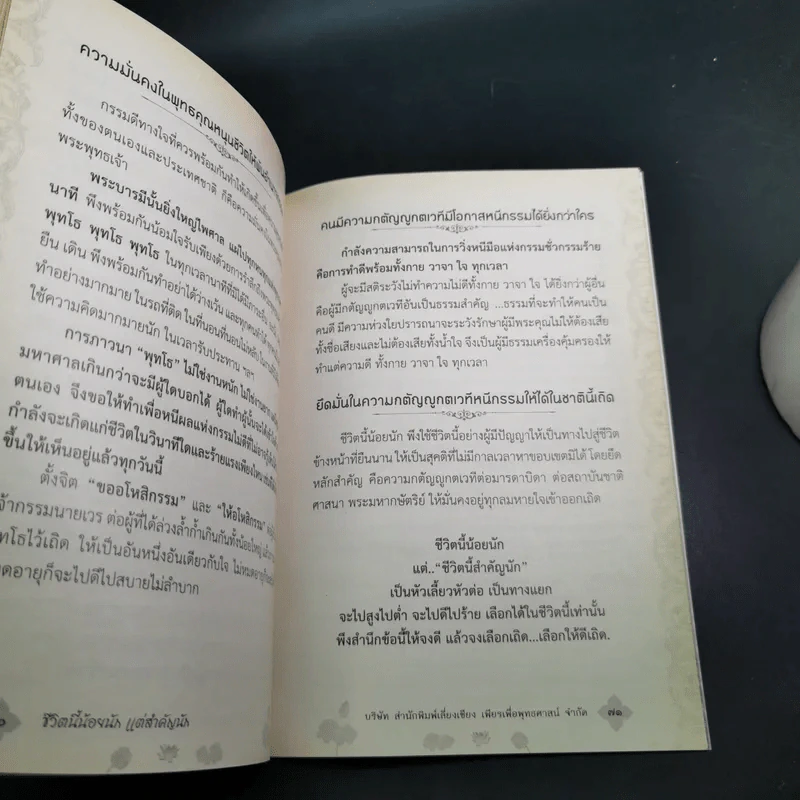 ความมั่นคงในพุทธคุณหนุนชีวิตให้
กรรมดีทางใจที่ควรพร้อมกันทำให้เกิดขึ้น
ทั้งของตนเองและประเทศชาติ ก็คือความ
พระพุทธเจ้า
พระบารมีนั้นยิ่งใหญ่ไพศาล แผ่ไป
นาที พึงพร้อมกันน้อมใจรับเพียงด้วยการรำลึกถึง
พุทโธ พุทโธ พุทโธ ในทุกเวลานาทีที่มิได้
ยืน เดิน พึงพร้อมกันทำอย่าได้ว่างเว้น และทุกคน
ทำอย่างมากมาย ในรถที่ติด ในที่นอนที่นอนไม่หลับ ใน
ใช้ความคิดมากมายนัก ในเวลารับประทาน ฯลฯ
การภาวนา “พุทโธ” ไม่ใช่งานหนัก ไม่ใช่งาน
มหาศาลเกินกว่าจะมีผู้ใดบอกได้ ผู้ใดทำผู้นั้นจะ
ตนเอง จึงขอให้ทำเพื่อหนีผลแห่งกรรมไม่ดีที่
กำลังจะเกิดแก่ชีวิตในวินาทีใดและร้ายแรงเพียงไหน
ขึ้นให้เห็นอยู่แล้วทุกวันนี้
ตั้งจิต “ขออโหสิกรรม” และ “ให้อโหสิกรรม”
จ้ากรรมนายเวร ต่อผู้ที่ได้ล่วงล้ำก้ำเกินกันทั้งน้อยใหญ่
ทโธไว้เถิด ให้เป็นอันหนึ่งอันเดียวกับใจ ไม่หมดอายุก็
ดอายุก็จะไปดีไปสบายไม่ลำบาก
ชีวิตนี้น้อยนัก แต่สำคัญนัก
คนมีความกตัญญูกตเวทีมีโอกาสหนีกรรมได้ยิ่งกว่าใคร
กำลังความสามารถในการวิ่งหนีมือแห่งกรรมชั่วกรรมร้าย
คือการทำดีพร้อมทั้งกาย วาจา ใจ ทุกเวลา
ผู้จะมีสติระวังไม่ทำความไม่ดีทั้งกาย วาจา ใจ ได้ยิ่งกว่าผู้อื่น
คือผู้มีกตัญญูกตเวทีอันเป็นธรรมสำคัญ ...ธรรมที่จะทำให้คนเป็น
คนดี มีความห่วงใยปรารถนาจะระวังรักษาผู้มีพระคุณไม่ให้ต้องเสีย
ทั้งชื่อเสียงและไม่ต้องเสียทั้งน้ำใจ จึงเป็นผู้มีธรรมเครื่องคุ้มครองให้
ทำแต่ความดี ทั้งกาย วาจา ใจ ทุกเวลา
ยึดมั่นในความกตัญญูกตเวทีหนีกรรมให้ได้ในชาตินี้เถิด
ชีวิตนี้น้อยนัก พึงใช้ชีวิตนี้อย่างผู้มีปัญญาให้เป็นทางไปสู่ชีวิต
ข้างหน้าที่ยืนนาน ให้เป็นสุคติที่ไม่มีกาลเวลาหาขอบเขตมิได้ โดยยึด
หลักสำคัญ คือความกตัญญูกตเวทีต่อมารดาบิดา ต่อสถาบันชาติ
ศาสนา พระมหากษัตริย์ ให้มั่นคงอยู่ทุกลมหายใจเข้าออกเถิด
ชีวิตนี้น้อยนัก
แต่..“ชีวิตนี้สำคัญนัก”
เป็นหัวเลี้ยวหัวต่อ เป็นทางแยก
จะไปสูงไปต่ำ จะไปดีไปร้าย เลือกได้ในชีวิตนี้เท่านั้น
พึงสำนึกข้อนี้ให้จงดี แล้วจงเลือกเถิด...เลือกให้ดีเถิด.
บริษัท สำนักพิมพ์เลี่ยงเชียง เพียรเพื่อพุทธศาสน์ จำกัด ๗๑